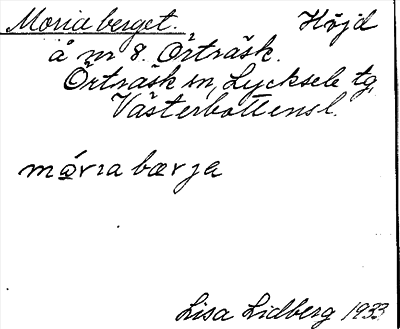 Moriaberget. Höjd
å nr 8. Örträsk.
Örträsk sn, Lycksele tg,
Västerbottensl.
mó̱rıabærja
Lisa Lidberg 1933